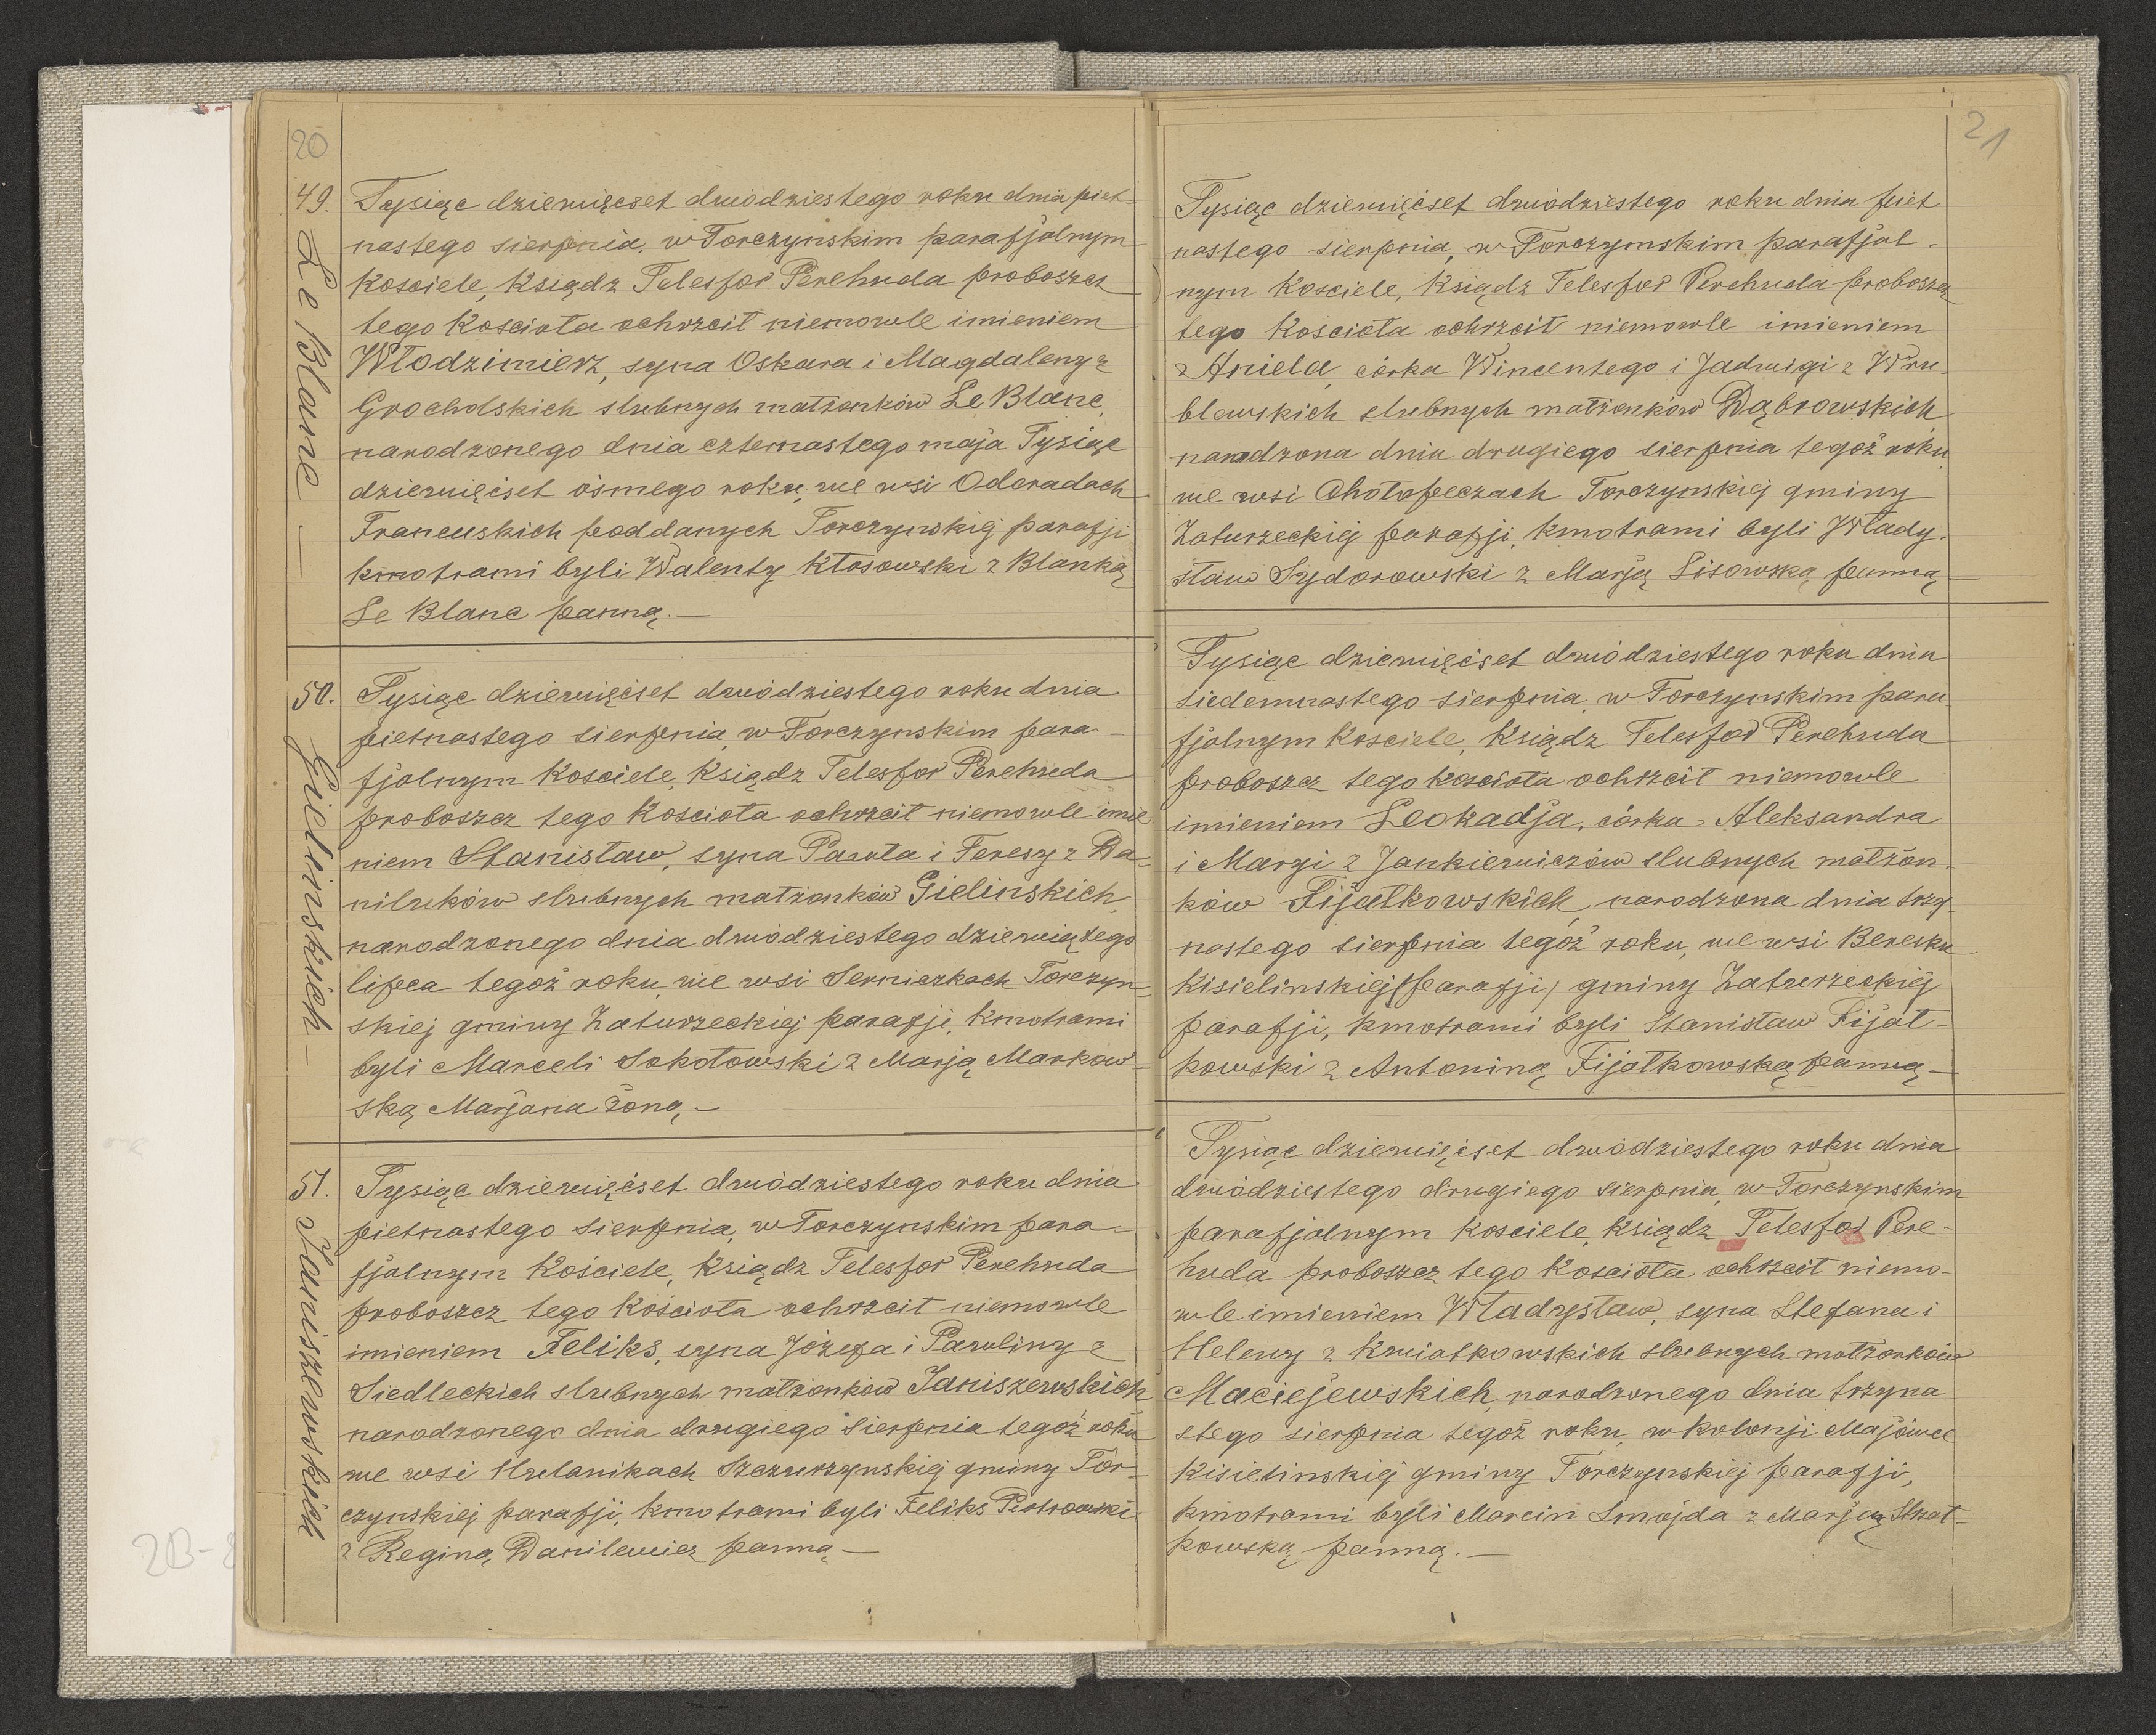 20
49.
Le Blanc —
Tysiąc dziewięćset dwódziestego roku dnia piet-
nastego sierpnia, w Torczynskim parafjalnym
Kosciele, Ksiądz Telesfor Perehuda proboszcz
tego Koscioła ochrzcił niemowle imieniem
Włodzimierz, syna Oskara i Magdaleny z
Grocholskich slubnych małżonków Le Blanc,
narodzonego dnia czternastego maja Tysiąc
dziewięćset ósmego roku, we wsi Oderadach
Francuskich poddanych Torczynskiej parafji
kmotrami byli Walenty Kłosowski z Blanką
Le Blanc panną. —
50.
Gielinskich —
Tysiąc dziewięćset dwódziestego roku dnia
pietnastego sierpnia, w Torczynskim para-
fjalnym Kosciele, Ksiądz Telesfor Perehuda
proboszcz tego Koscioła ochrzcił niemowle imie
niem Stanisław, syna Pawła i Teresy z Da-
niluków slubnych małżonków Gielinskich,
narodzonego dnia dwódziestego dziewiątego
lipca tegoż roku, we wsi Serniczkach Torczyn-
skiej gminy Zaturzeckiej parafji, Kmotrami
byli Marceli Sokołowski z Marją Markow-
ską Marjana żoną, —
51.
Janiszewskich
Tysiąc dziewięćset dwódziestego roku dnia
pietnastego sierpnia, w Torczynskim para-
fjalnym Kościele, Ksiądz Telesfor Perehuda
proboszcz tego Kościoła ochrzcił niemowle
imieniem Feliks, syna Józefa i Pawliny z
Siedleckich slubnych małżonków Janiszewskich
narodzonego dnia drugiego sierpnia tegoż roku
we wsi Usulanikach Szczurzynskiej gminy Tor-
czynskiej parafji, kmotrami byli Feliks Piotrowski
z Reginą Danilewicz panną —
21
Tysiąc dziewięćset dwódziestego roku dnia piet
nastego sierpnia, w Torczynskim parafjal-
nym Kosciele, Ksiądz Telesfor Perehuda proboszcz
tego Kościoła ochrzcił niemowle imieniem
Aniela, córka Wincentego i Jadwigi z Wru-
blewskich slubnych małżonków Dąbrowskich,
narodzona dnia drugiego sierpnia tegoż roku
we wsi Chołopeczach Torczynskiej gminy
Zaturzeckiej parafji, kmotrami byli Włady-
sław Sydorowski z Marją Lisowską panną —
Tysiąc dziewięćset dwódziestego roku dnia
siedemnastego sierpnia, w Torczynskim para-
fjalnym Kosciele, Ksiądz Telesfor Perehuda
proboszcz tego kosciola ochrzcił niemowle
imieniem Leokadja, córka Aleksandra
i Maryi z Jankiewiczów slubnych małżon-
ków Fijałkowskich, narodzona dnia trzy-
nastego sierpnia tegoż roku, we wsi Beresku
Kisielinskiej (parafji) gminy Zaturzeckiej
parafji, kmotrami byli Stanisław Fijał-
kowski z Antoniną Fijałkowską panną —
Tysiąc dziewięćset dwódziestego roku dnia
dwódziestego drugiego sierpnia, w Torczynskim
parafjalnym kosciele, Ksiądz Telesfor Pere-
huda proboszcz tego Kosciola ochrzcił niemo-
wle imieniem Władzysław, syna Stefana i
Heleny z Kwiatkowskich slubnych małżonków
Maciejewskich, narodzonego dnia trzyna-
stego sierpnia tegoż roku, w kolonji Majówce
Kisielinskiej gminy Torczynskiej parafji,
kmotrami byli Marcin Smajda z Marją
kowską panną. —